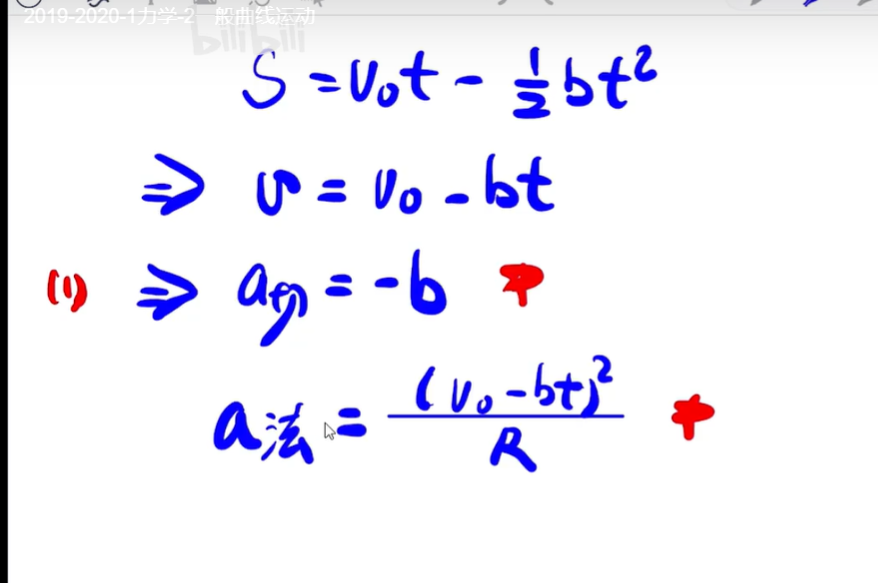 2019-2020-1力学-2 一般曲线运动
bilibili
S = v₀t - ½bt²
⇒ v = v₀ - bt
(1) ⇒ a切 = -b
a法 = (v₀ - bt)² / R